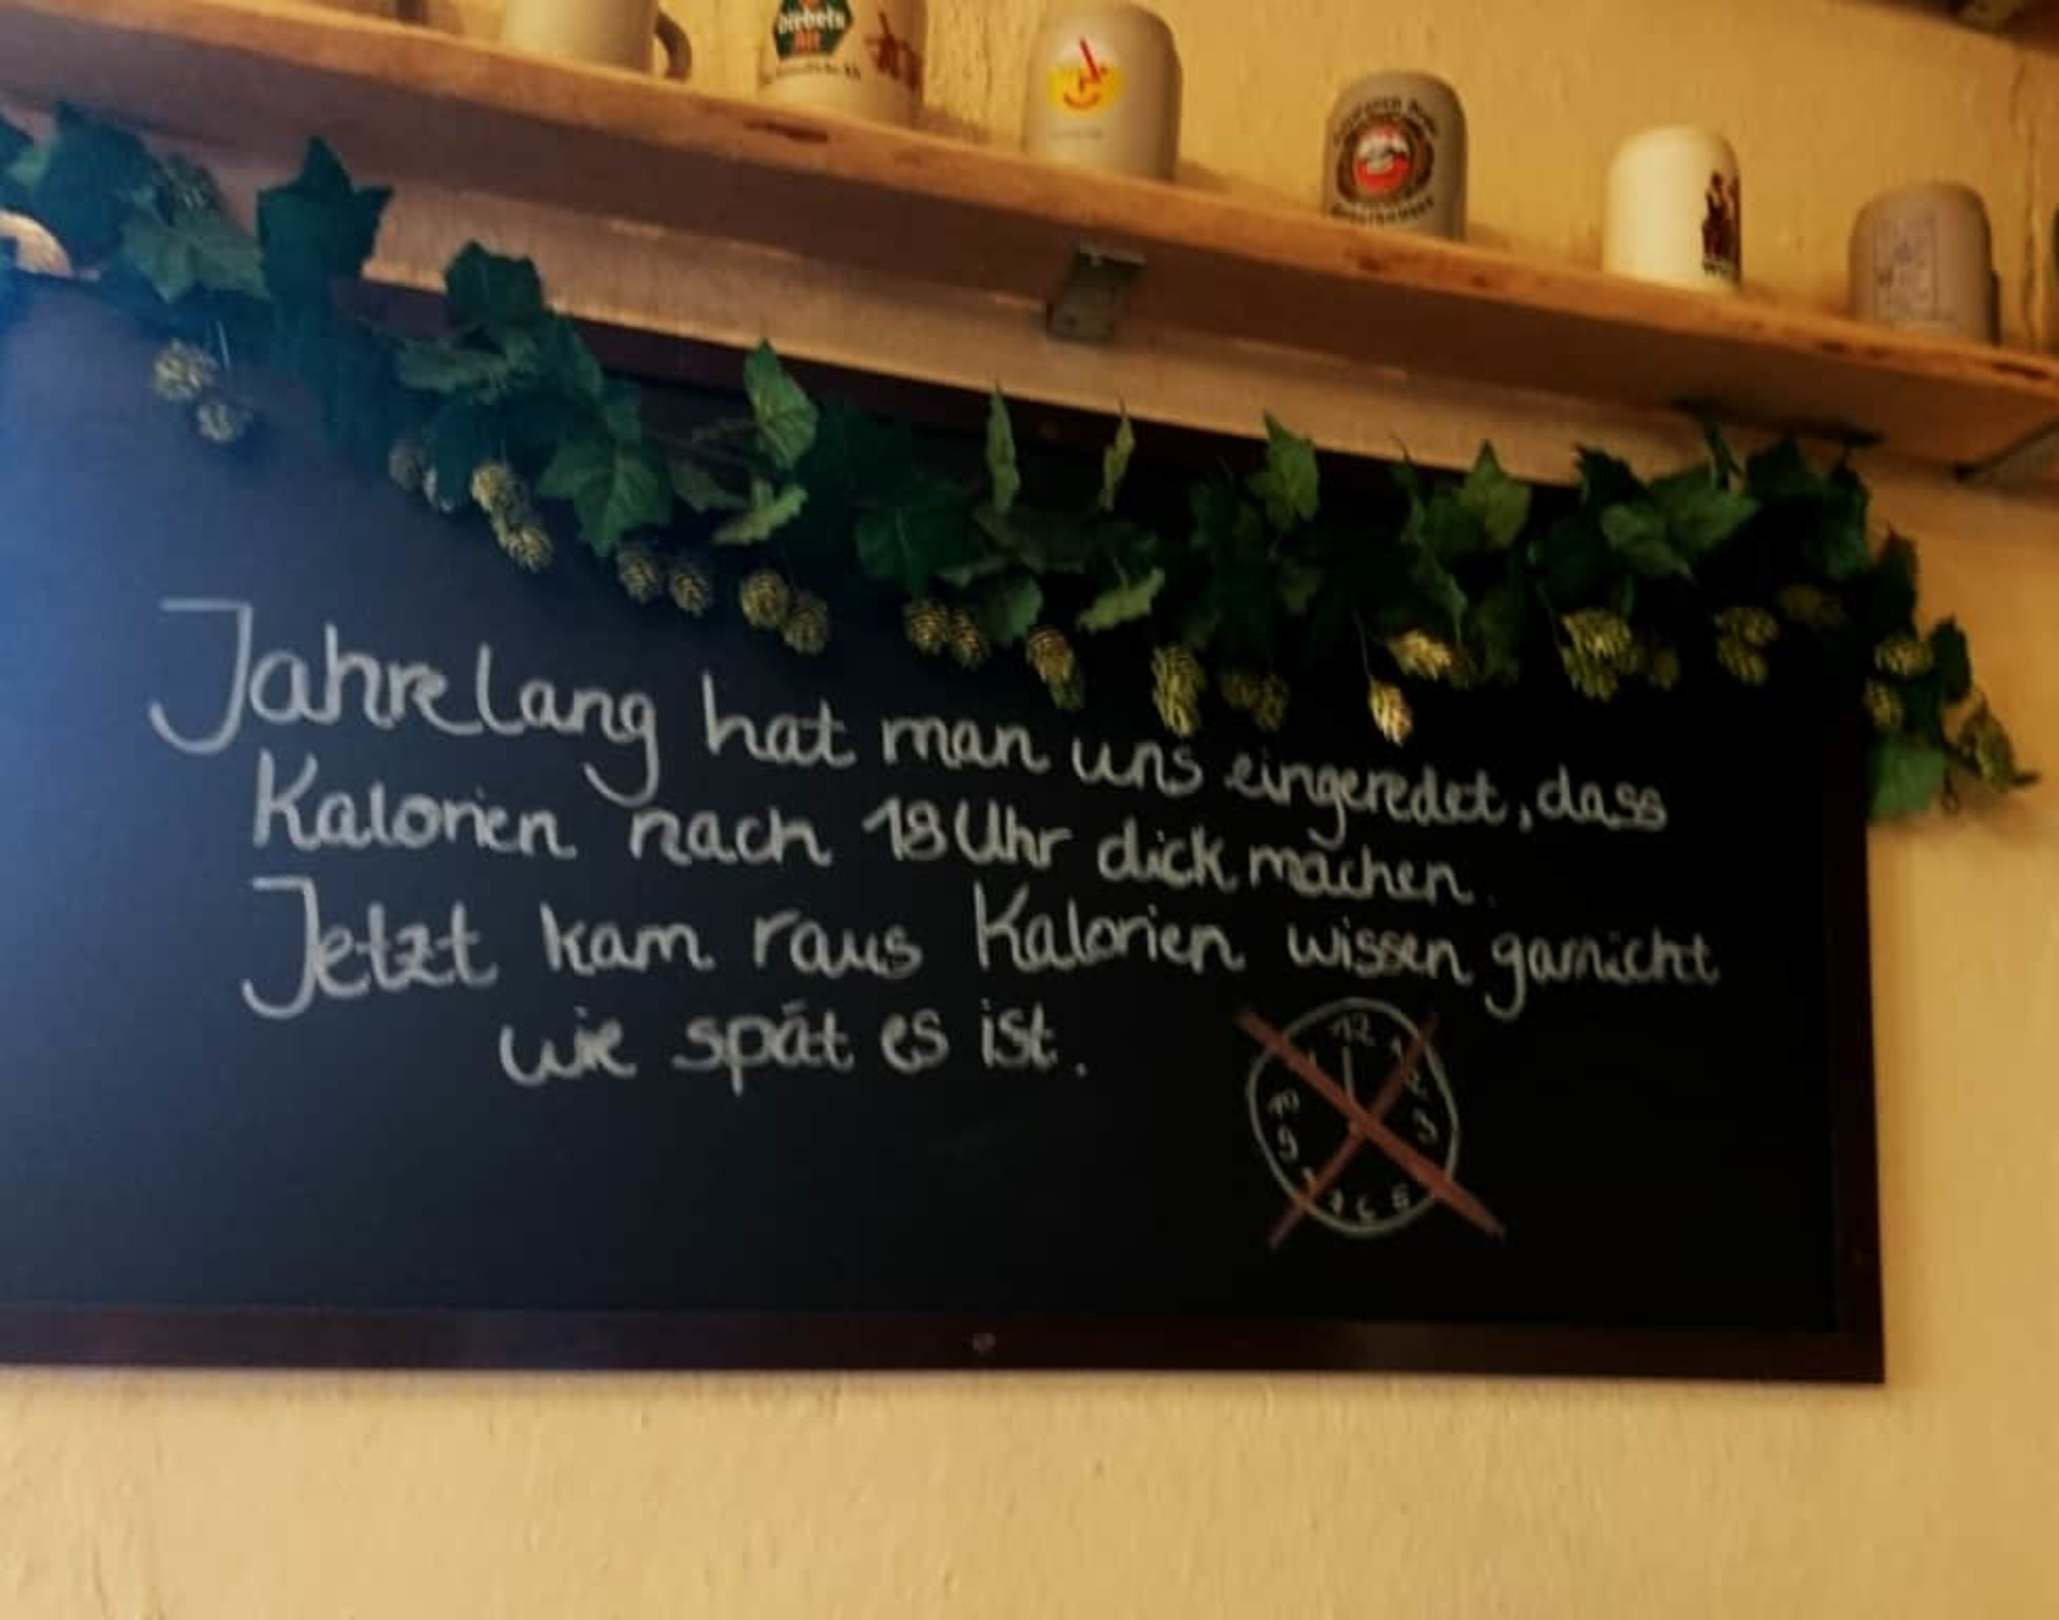 Diebels
Alt
Jahrelang hat man uns eingeredet, dass
Kalorien nach 18 Uhr dick machen.
Jetzt kam raus Kalorien wissen garnicht
wie spät es ist.
12
1
2
3
5
6
9
10